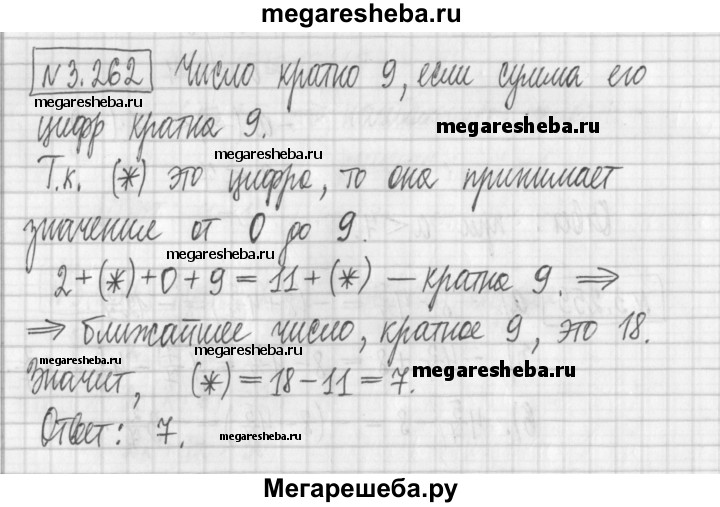 megaresheba.ru
N3.262 Число кратно 9, если сумма его
megaresheba.ru
цифр кратна 9.
megaresheba.ru
megaresheba.ru
Т.к. (*) это цифра, то она принимает
значение от 0 до 9.
megaresheba.ru
2+(*)+0+9=11+(*) — кратна 9. ⇒
⇒ ближайшее число, кратное 9, это 18.
megaresheba.ru
megaresheba.ru
Значит, (*)=18-11=7.
megaresheba.ru
Ответ: 7.
megaresheba.ru
Мегарешеба.ру